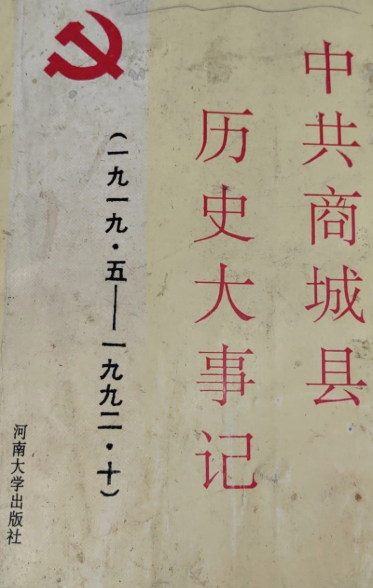 中共商城县
历史大事记
(一九一九·五——一九九二·十)
河南大学出版社